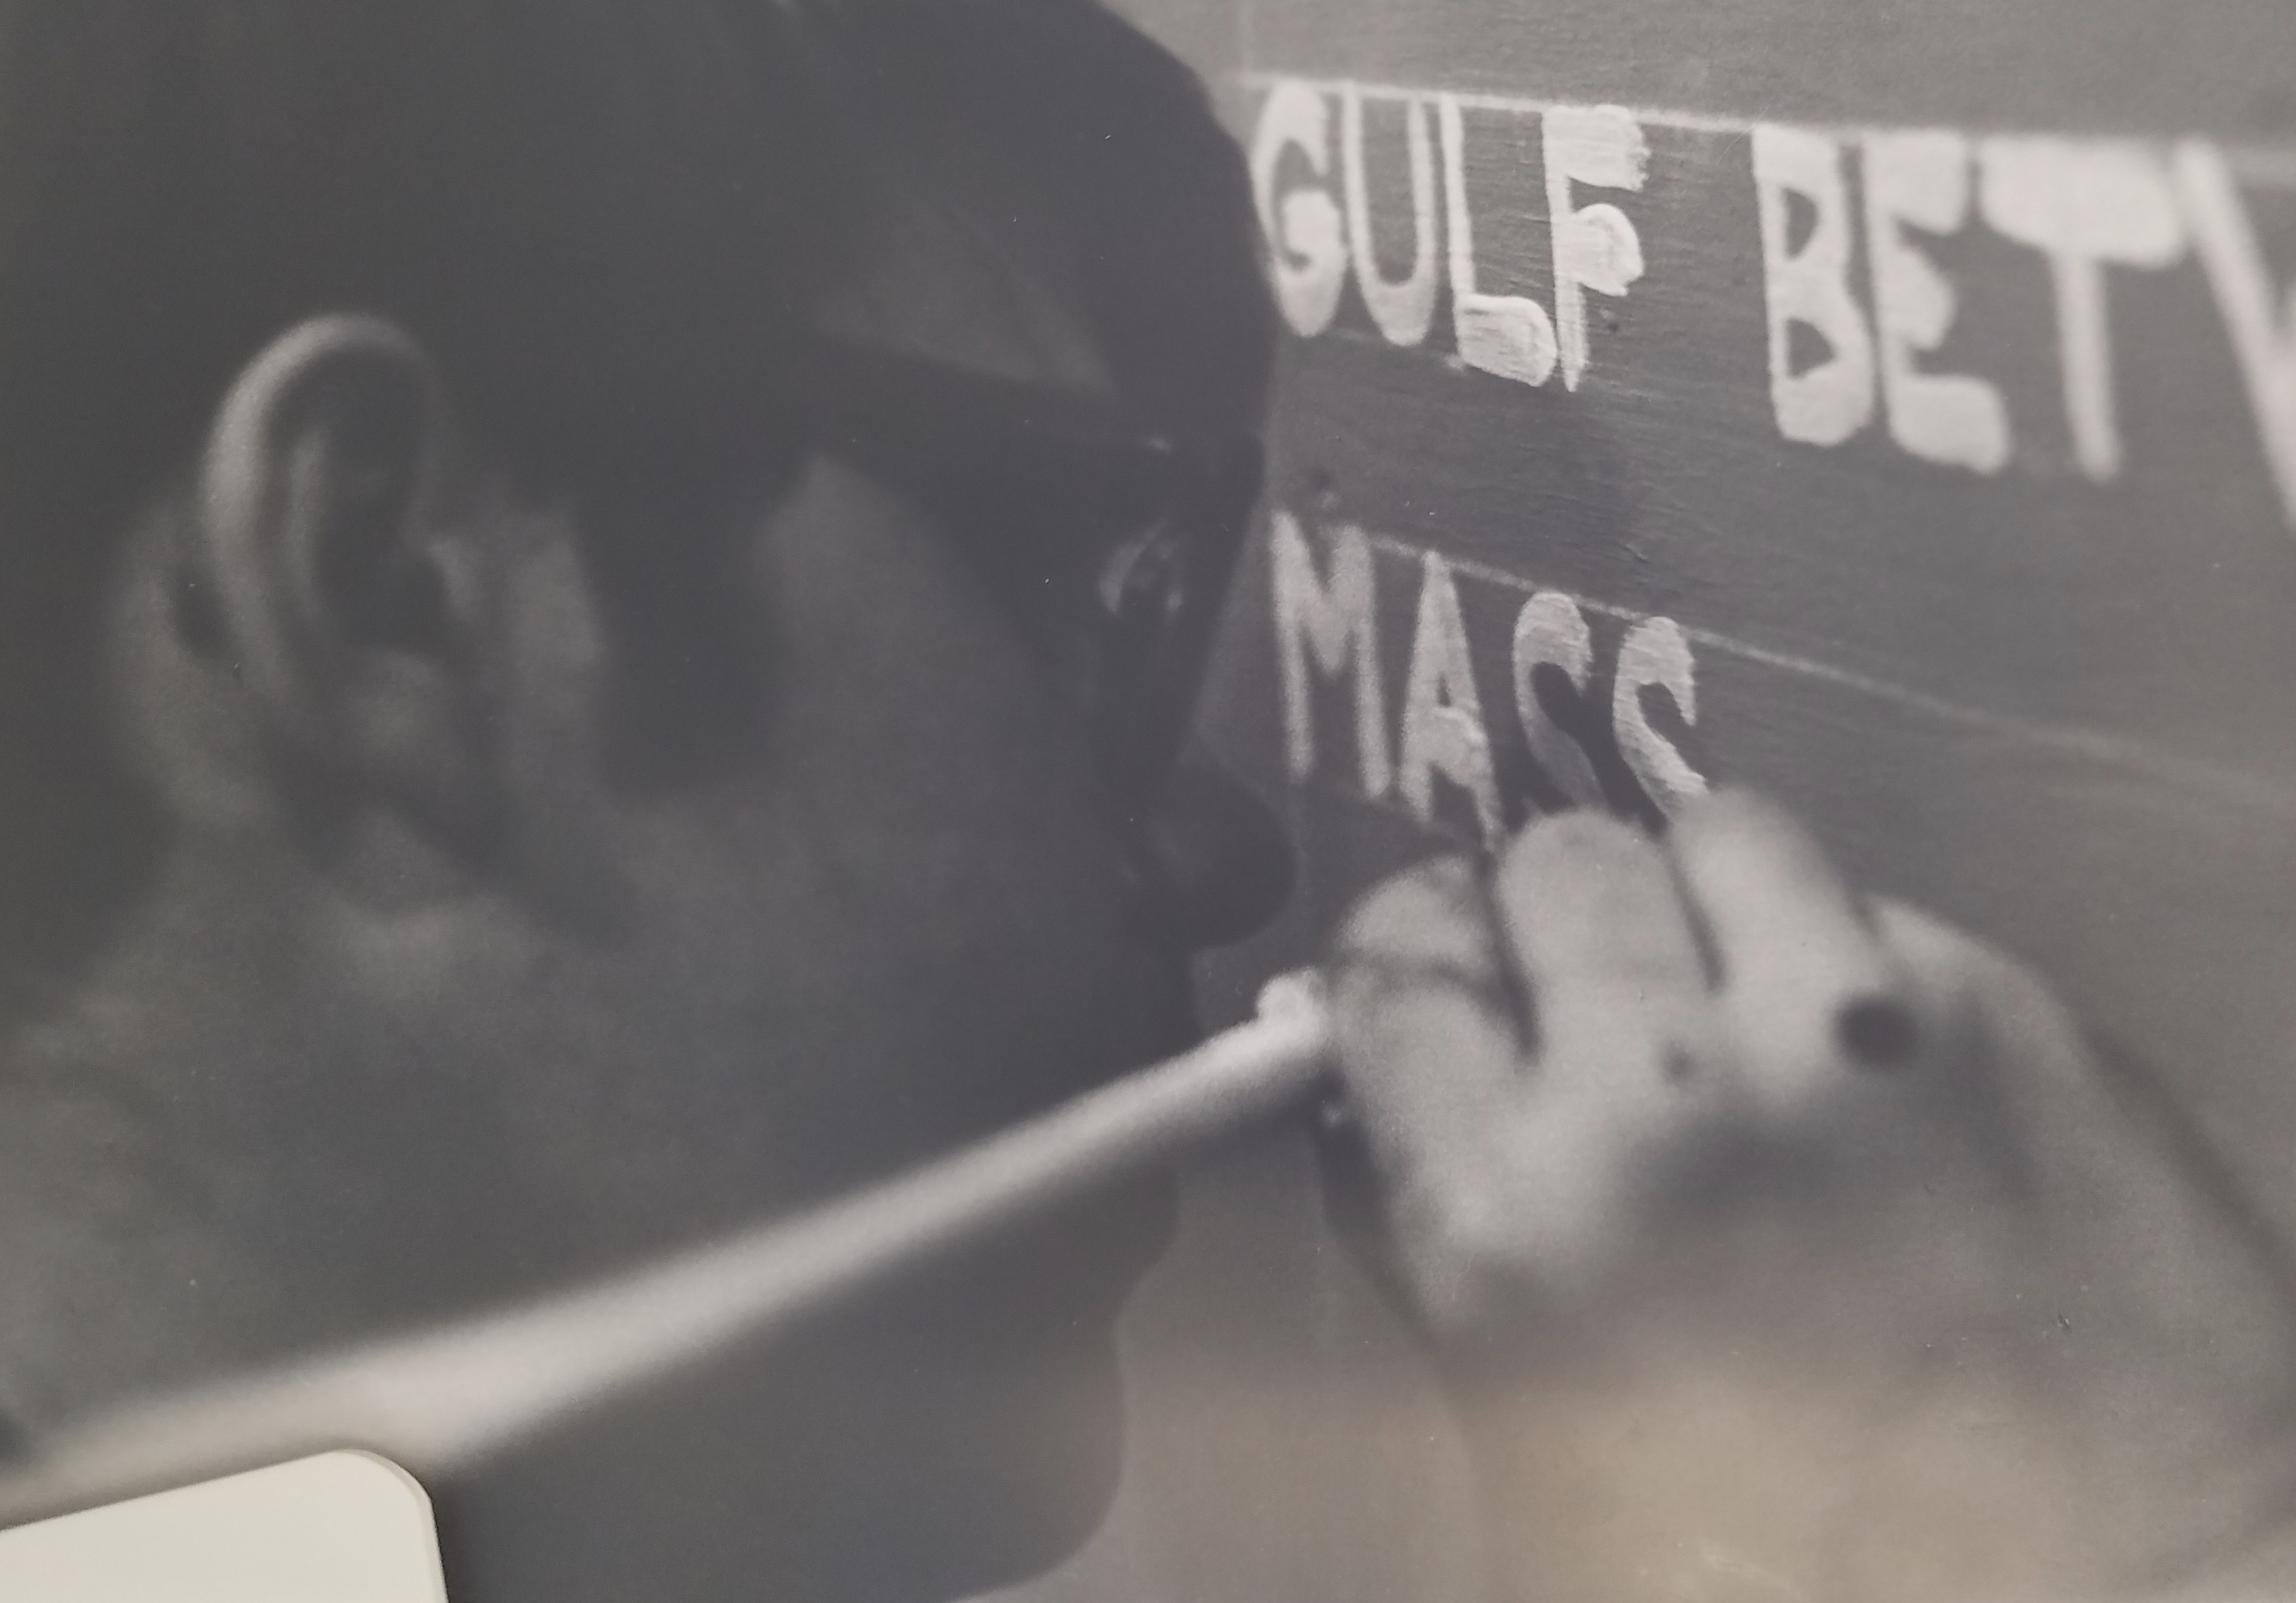 GULF BETW
MASS